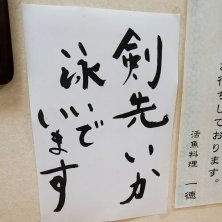 剣先いか
泳いで
います
お待ちしております。
活魚料理 一徳